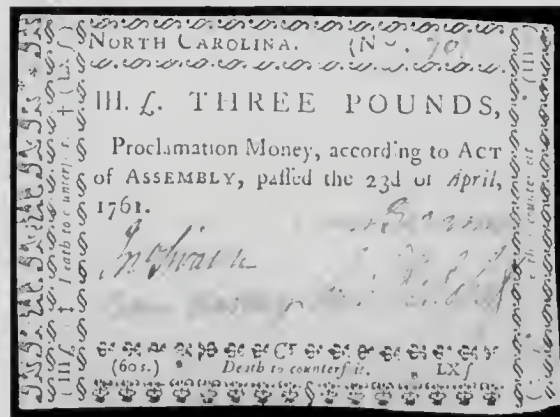 NORTH CAROLINA. (No. 70)
III. £. THREE POUNDS,
Proclamation Money, according to ACT
of ASSEMBLY, paſſed the 23d of April,
1761.
Jn Swann
(60s.) Death to counterfeit. LXſ
(III £ ‡ Death to counterfeit. † (LXſ